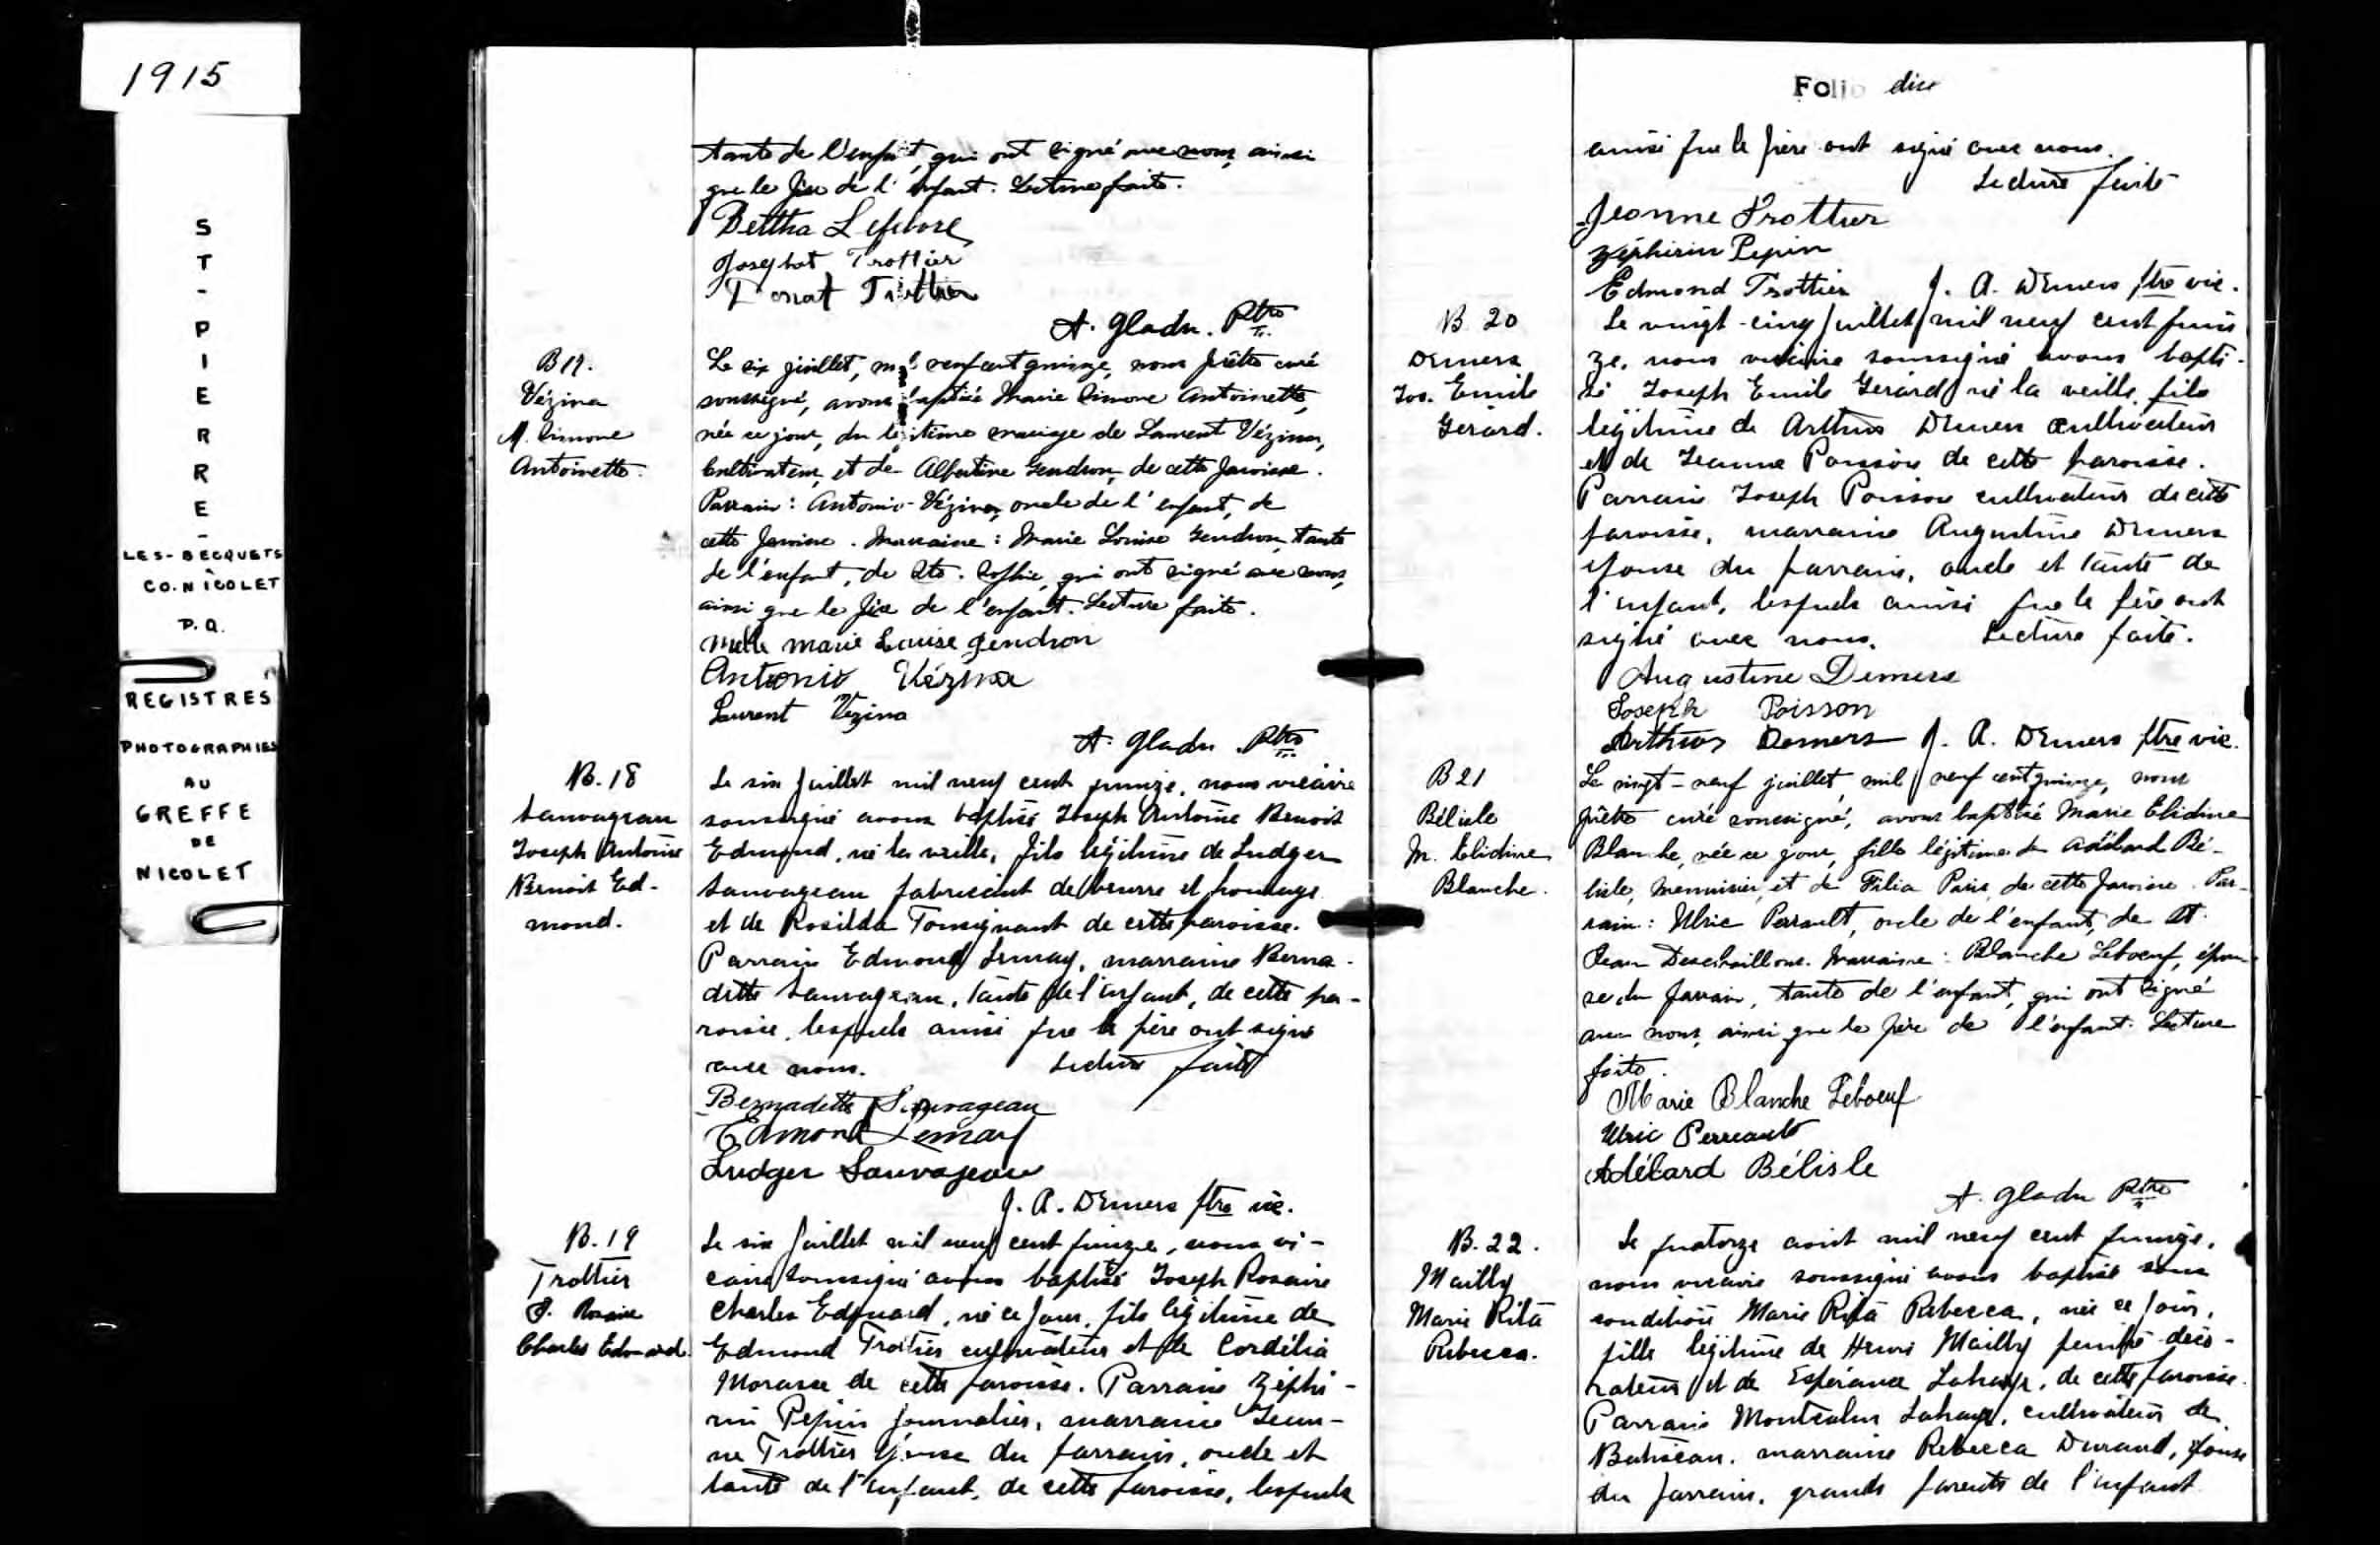 1915
ST-PIERRE-
LES-BECQUETS
CO. NICOLET
P.Q.
REGISTRES
PHOTOGRAPHIES
AU
GREFFE
DE
NICOLET
tante de l'enfant, qui ont signé avec nous, ainsi
que le père de l'enfant. Lecture faite.
Bertha Lefebvre
Josephat Trottier
Donat Trottier
A. Gladu. Ptre
B 17.
Vézina
M. Simone
Antoinette.
Le six juillet, mil neuf cent quinze, nous prêtre curé
soussigné, avons baptisé Marie Simone Antoinette,
née ce jour, du légitime mariage de Laurent Vézina,
cultivateur, et de Albertine Gendron, de cette paroisse.
Parrain : Antonio Vézina, oncle de l'enfant, de
cette paroisse. Marraine : Marie Louise Gendron, tante
de l'enfant, de Ste. Sophie, qui ont signé avec nous,
ainsi que le père de l'enfant. Lecture faite.
Melle Marie Louise Gendron
Antonio Vézina
Laurent Vézina
A. Gladu. Ptre
B. 18
Sauvageau
Joseph Antoine
Benoit Ed-
mond.
Le six Juillet mil neuf cent quinze, nous vicaire
soussigné avons baptisé Joseph Antoine Benoit
Edmond, né la veille, fils légitime de Ludger
Sauvageau fabricant de beurre et fromage
et de Rosilda Tousignant de cette paroisse.
Parrain Edmond Lemay, marraine Berna-
dette Sauvageau, tante de l'enfant, de cette pa-
roisse, lesquels ainsi que le père ont signé
avec nous. Lecture faite
Bernadette Sauvageau
Edmond Lemay
Ludger Sauvageau
J. A. Demers ptre vic.
B. 19
Trottier
J. Rosaire
Charles Edouard.
Le six Juillet mil neuf cent quinze, nous vi-
caire soussigné avons baptisé Joseph Rosaire
Charles Edouard, né ce jour, fils légitime de
Edmond Trottier cultivateur et de Cordélia
Morasse de cette paroisse. Parrain Zéphi-
rin Pepin journalier, marraine Jean-
ne Trottier épouse du parrain, oncle et
tante de l'enfant, de cette paroisse, lesquels
Folio dix
ainsi que le père ont signé avec nous.
Lecture faite
Jeanne Trottier
Zéphirin Pepin
Edmond Trottier J. A. Demers ptre vic.
B. 20
Demers
Jos. Emile
Gérard.
Le vingt-cinq Juillet mil neuf cent quin
ze, nous vicaire soussigné avons bapti-
sé Joseph Emile Gérard né la veille, fils
légitime de Arthur Demers cultivateur
et de Jeanne Poisson de cette paroisse.
Parrain Joseph Poisson cultivateur de cette
paroisse, marraine Augustine Demers
épouse du parrain, oncle et tante de
l'enfant, lesquels ainsi que le père ont
signé avec nous. Lecture faite.
Augustine Demers
Joseph Poisson
Arthur Demers J. A. Demers ptre vic.
B 21
Bélisle
M. Elidine
Blanche.
Le vingt-neuf juillet, mil neuf cent quinze, nous
prêtre curé soussigné, avons baptisé Marie Elidine
Blanche, née ce jour, fille légitime de Adélard Bé-
lisle, menuisier, et de Filia Paris, de cette paroisse. Par-
rain : Ulric Perrault, oncle de l'enfant, de St.
Jean Deschaillons. Marraine : Blanche Leboeuf, épou-
se du parrain, tante de l'enfant, qui ont signé
avec nous, ainsi que le père de l'enfant. Lecture
faite.
Marie Blanche Leboeuf
Ulric Perreault
Adélard Bélisle
A. Gladu Ptre
B. 22.
Mailly
Marie Rita
Rebecca.
Le quatorze août mil neuf cent quinze,
nous vicaire soussigné avons baptisé sous
condition Marie Rita Rebecca, née ce jour,
fille légitime de Henri Mailly peintre-déco-
rateur et de Espérance Lahaye, de cette paroisse.
Parrain Montcalm Lahaye, cultivateur de
Batiscan, marraine Rebecca Durand, épouse
du parrain, grands parents de l'enfant